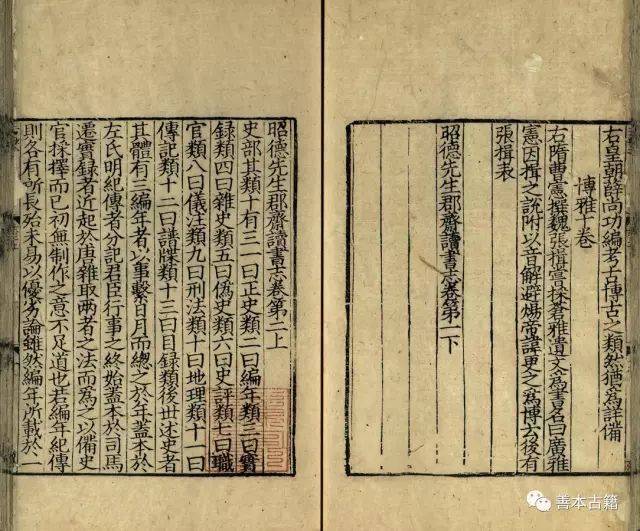 右皇朝薛尚功編考古博古之類然猶為詳備
博雅十卷
右隋曹憲撰魏張揖嘗採蒼雅遺文為書名曰廣雅
憲因揖之說附以音解避煬帝諱更之為博云後有
張揖表
昭德先生郡齋讀書志卷第一下
昭德先生郡齋讀書志卷第二上
史部其類十有三一曰正史類二曰編年類三曰實
録類四曰雜史類五曰偽史類六曰史評類七曰職
官類八曰儀注類九曰刑法類十曰地理類十一曰
傳記類十二曰譜牒類十三曰目録類後世述史者
其體有三編年者以事繫日月而總之於年蓋本於
左氏明紀傳者分記君臣行事之終始蓋本於司馬
遷實録者近起於唐雜取兩者之法而為之以備史
官採擇而已初無制作之意不足道也若編年紀傳
則各有所長殆未易以優劣論雖然編年所載於一
善本古籍